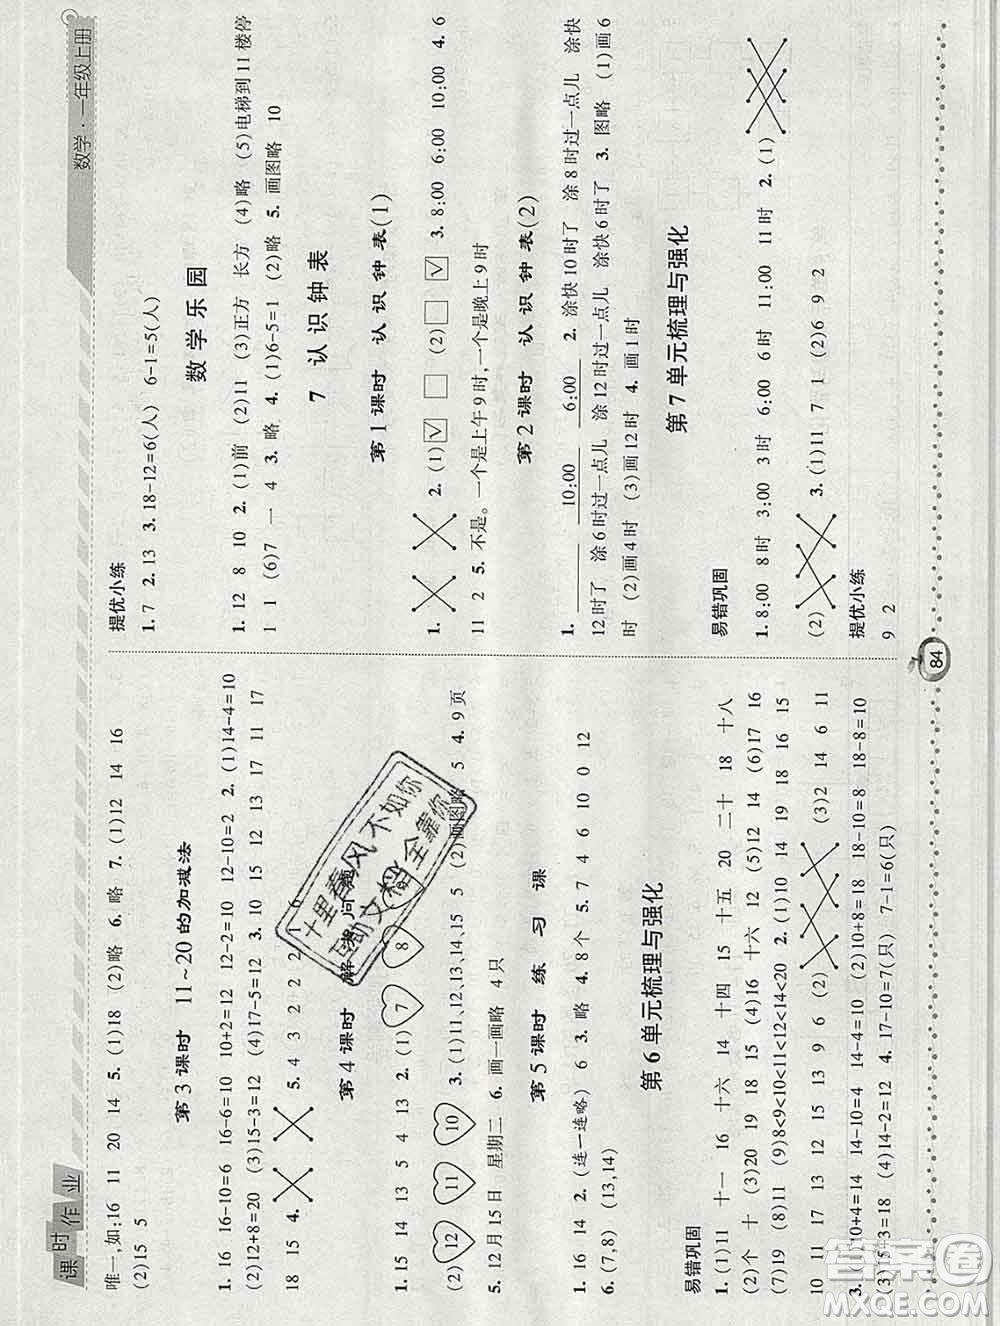 课时作业
数学·一年级上册
唯一,如:16 11 20 14 5. (1)18 (2)略 6. 略 7. (1)12 14 16
(2)15 5
第3课时 11~20的加减法
1. 16 16-10=6 16-6=10 10+2=12 12-2=10 12-10=2 2. (1)14-4=10
(2)12+8=20 (3)15-3=12 (4)17-5=12 3. 10 15 12 13 17 11 17
18 15 4. 5. 4 3 2 2 2
第4课时
1. 15 14 13 5 4 13 2. (1) 7 8
(2) 12 11 10 3. (1)11,12,13,14,15 5 (2)画图略 5 4. 9页
5. 12月15日 星期二 6. 画一画略 4只
第5课时 练习课
1. 16 14 2. (连一连略) 6 3. 略 4. 8个 5. 7 4 6 10 0 12
6. (7,8) (13,14)
第6单元梳理与强化
易错巩固
1. (1)11 十一 16 十六 14 十四 15 十五 20 二十 18 十八
(2)个 十 (3)20 19 18 15 (4)16 十六 12 (5)12 14 (6)17 16
(7)19 (8)11 (9)8<9<10<11<12<14<20 2. (1)10 14 19 18 16 15
10 11 17 13 12 15 13 9 6 (2) (3)2 14 6 11
3. 10+4=14 14-10=4 14-4=10 (2)10+8=18 18-10=8 18-8=10
(3)15+3=18 (4)14-2=12 4. 17-10=7(只) 7-1=6(只)
提优小练
1. 7 2. 13 3. 18-12=6(人) 6-1=5(人)
数学乐园
1. 12 8 10 2. (1)前 (2)11 (3)正方 长方 (4)略 (5)电梯到11楼停
1 1 (6)7 一 4 3. 略 4. (1)6-5=1 (2)略 5. 画图略 10
7 认识钟表
第1课时 认识钟表(1)
1. 2. (1)☑ □ (2)□ ☑ 3. 8:00 6:00 10:00 4. 6
11 2 5. 不是。一个是上午9时,一个是晚上9时
第2课时 认识钟表(2)
1. 10:00 6:00 2. 涂快10时了 涂8时过一点儿 涂快
12时了 涂6时过一点儿 涂12时过一点儿 涂快6时了 3. 图略 (1)画6
时 (2)画4时 (3)画12时 4. 画1时
第7单元梳理与强化
易错巩固
1. 8:00 8时 3:00 3时 6:00 6时 11:00 11时 2. (1)
(2) 3. (1)11 7 1 (2)6 9 2
提优小练
9 2
84
十里春风不如你
全靠你
答案圈
MXQE.COM